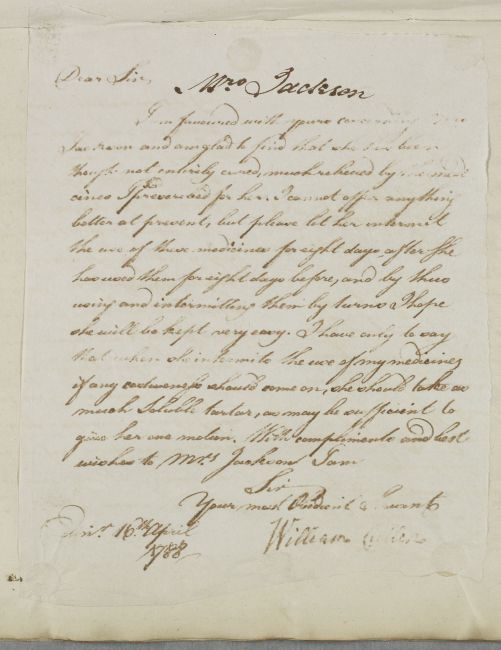 Dear Sir,
Mrs Jackson
I am favoured with yours concerning Mrs
Jackson and am glad to find that she has been
though not entirely cured, much relieved by the medi
cines I prescribed for her. I cannot offer anything
better at present, but please let her intermit
the use of these medicines for eight days after she
has used them for eight days before, and by thus
using and intermitting them by turns I hope
she will be kept very easy. I have only to say
that when she intermits the use of my medicines
if any costiveness should come on, she should take as
much Soluble tartar, as may be sufficient to
give her one motion. With compliments and best
wishes to Mrs Jackson I am
Sir
Your most Obedient Servant
Edinr. 16th April
1788
William Cullen